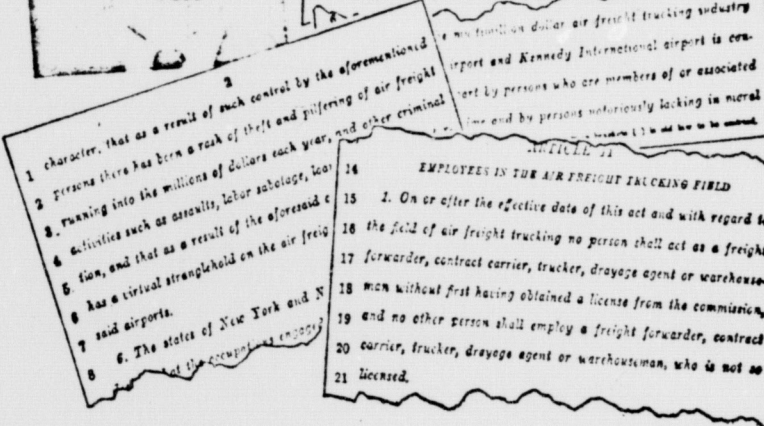 dollar air freight trucking industry
airport and Kennedy International airport is con-
by persons who are members of or associated
and by persons notoriously lacking in moral
2
1 character, that as a result of such control by the aforementioned
2 persons there has been a rash of theft and pilfering of air freight
3 running into the millions of dollars each year, and other criminal
4 activities such as assaults, labor sabotage,
5 tion, and that as a result of the aforesaid
6 has a virtual stranglehold on the air freig
7 said airports.
8 6. The states of New York and N
at the occupations engaged
ARTICLE
14 EMPLOYEES IN THE AIR FREIGHT TRUCKING FIELD
15 1. On or after the effective date of this act and with regard to
16 the field of air freight trucking no person shall act as a freight
17 forwarder, contract carrier, trucker, drayage agent or warehouse-
18 man without first having obtained a license from the commission,
19 and no other person shall employ a freight forwarder, contract
20 carrier, trucker, drayage agent or warehouseman, who is not so
21 licensed.